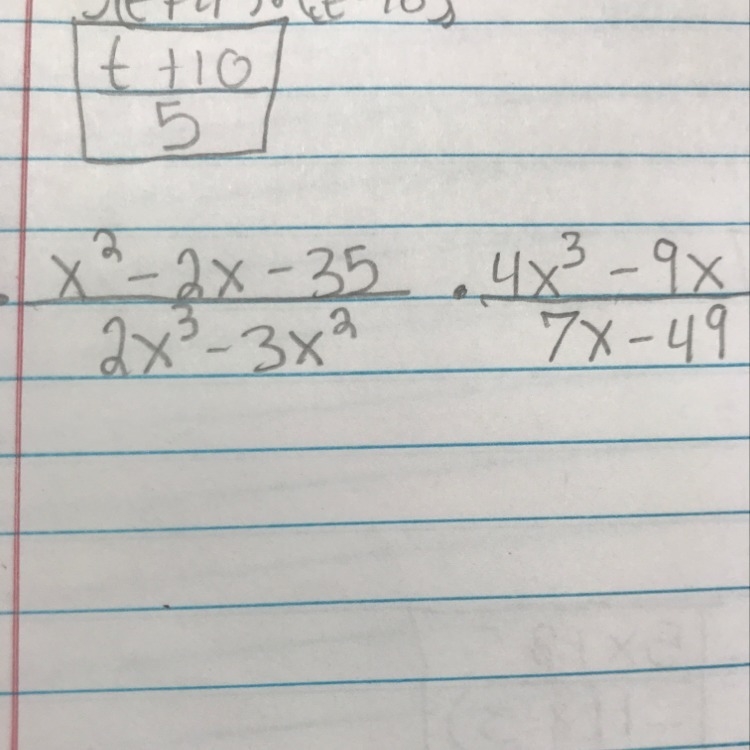 t + 10
5
x² - 2x - 35 · 4x³ - 9x
2x³ - 3x² 7x - 49